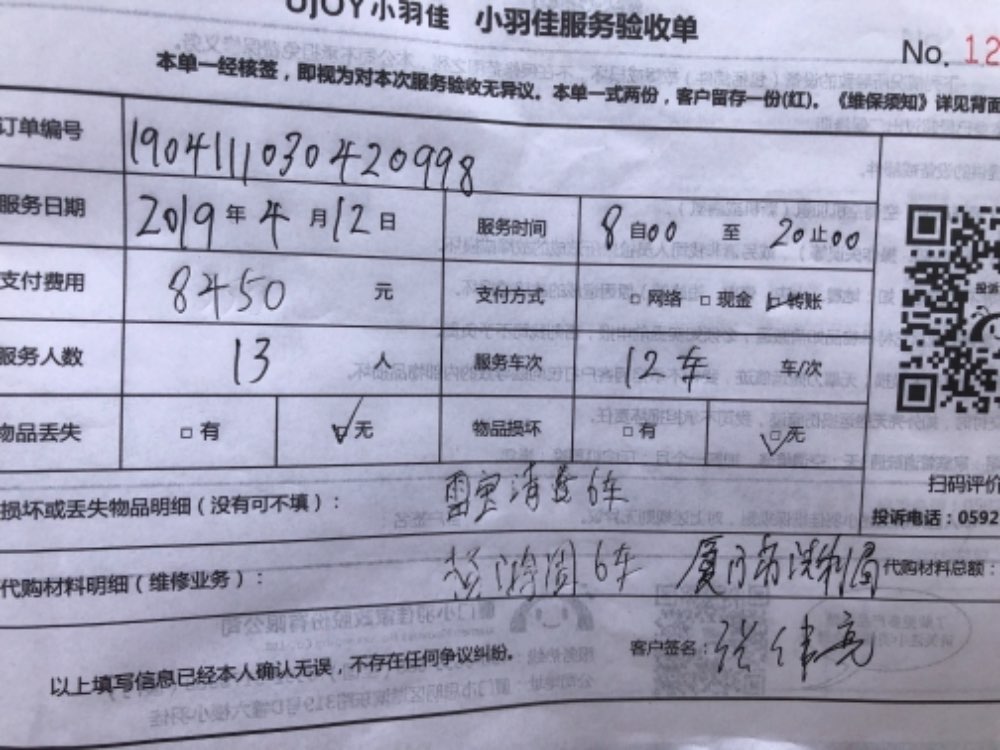 UJOY小羽佳 小羽佳服务验收单
No. 12
本单一经核签，即视为对本次服务验收无异议。本单一式两份，客户留存一份(红)。《维保须知》详见背面
订单编号 1904111030420998
服务日期 2019 年 4 月 12 日 服务时间 8 自00 至 20止00
支付费用 8450 元 支付方式 □ 网络 □ 现金 □ 转账
服务人数 13 人 服务车次 12车 车/次
物品丢失 □ 有 ☑ 无 物品损坏 □ 有 ☑ 无
扫码评价
损坏或丢失物品明细（没有可不填）： 6车
投诉电话：0592
代购材料明细（维修业务）： 6车 厦门市
代购材料总额：
以上填写信息已经本人确认无误，不存在任何争议纠纷。 客户签名：张伟亮